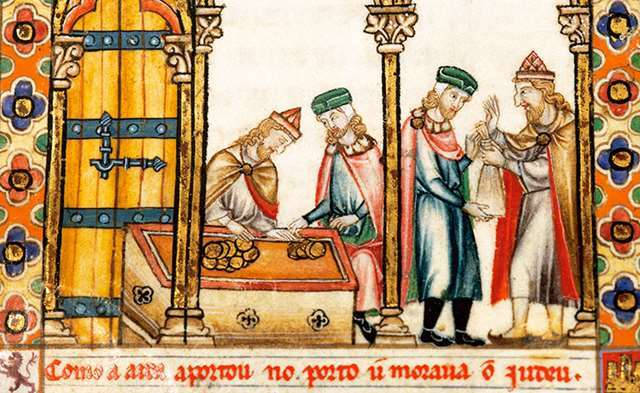 Como a arca aportou no porto ũ moraua õ judeu.